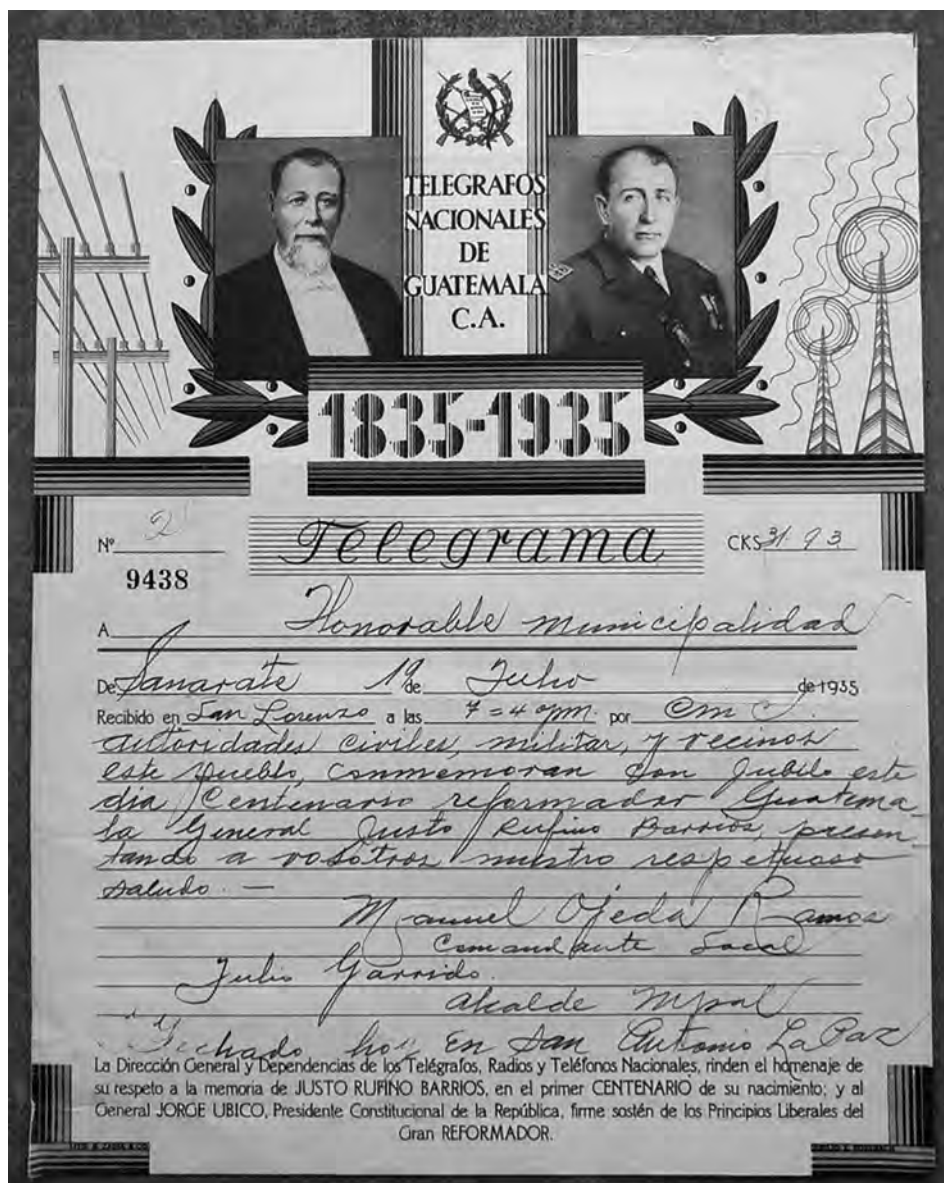 TELEGRAFOS
NACIONALES
DE
GUATEMALA
C.A.
1835-1935
Nº 2
9438
Telegrama
CKS 31. 93
A Honorable municipalidad
De Sanarate 19 de Julio de 1935
Recibido en San Lorenzo a las 7=40pm. por
autoridades civiles, militar, y vecinos
este pueblo, conmemoran con jubilo este
dia Centenario reformador Guatema
la General Justo Rufino Barrios, presen
tando a vosotros nuestro respetuoso
saludo. —
Manuel Ojeda Ramos
Comandante Local
Julio Garrido.
alcalde Mpal
Fechado hoy En San Antonio La Paz
La Dirección General y Dependencias de los Telégrafos, Radios y Teléfonos Nacionales, rinden el homenaje de
su respeto a la memoria de JUSTO RUFINO BARRIOS, en el primer CENTENARIO de su nacimiento; y al
General JORGE UBICO, Presidente Constitucional de la República, firme sostén de los Principios Liberales del
Gran REFORMADOR.